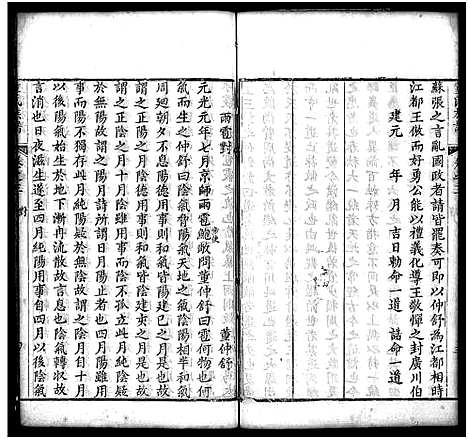 蘇張之言亂國政者請皆罷奏可即以仲舒為江都相時
江都王倣而好勇公以禮義化導王敬憚之封廣川伯
建元　年　月　吉日勅命一道　誥命一道
雨雹對
董仲舒
元光元年七月京師雨雹鮑敞問董仲舒曰雹何物也何
氣而生之仲舒曰陰氣脅陽氣天地之氣陰陽相半和氣
周廻朝夕不息陽德用事則和氣皆陽建巳之月是也故
謂之正陽之月陰德用事則和氣皆陰建亥之月是也故
謂之正陰之月十月陰雖用事而陰不孤立此月純陰疑
於無陽故謂之陽月詩人所謂日月陽止者也四月陽雖用
事而陽不獨存此月純陽疑於無陰故謂之陰月自十月
以後陽氣始生於地下漸冉流散故言息也陰氣轉收故
言消也日夜滋生遂至四月純陽用事自四月以後陰氣